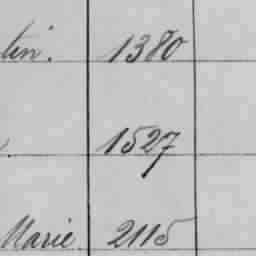 tin. 1380
1527
Marie 2115